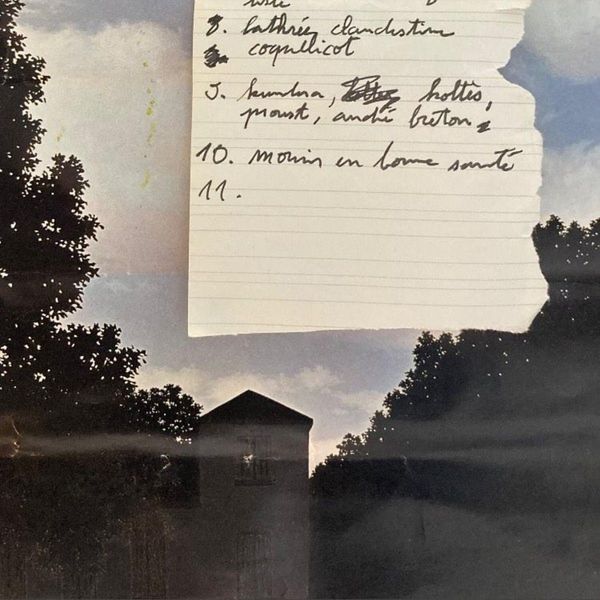 8. bathnés clandestine
coquelicot
9. kundera, koltès,
proust, andré breton
10. mourir en bonne santé
11.